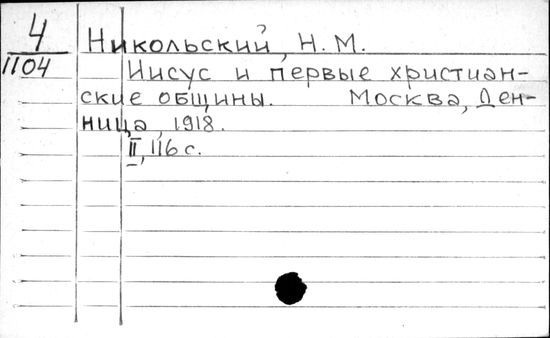 4
1104
Никольский, Н. М.
Иисус и первые христиан-
ские общины. Москва, Ден-
ница, 1918.
II, 116 с.